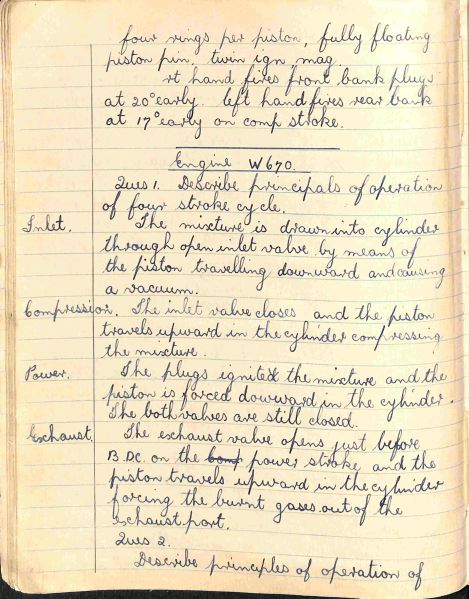 four rings per piston, fully floating
piston pin, twin ign mag.
rt hand fires front bank plugs
at 20° early. left hand fires rear bank
at 17° early on comp stroke.
Engine W670.
Ques 1. Describe principals of operation
of four stroke cycle.
Inlet. The mixture is drawn into cylinder
through open inlet valve by means of
the piston travelling downward and causing
a vacuum.
Compression. The inlet valve closes and the piston
travels upward in the cylinder compressing
the mixture.
Power. The plugs ignited the mixture and the
piston is forced dowward in the cylinder.
The both valves are still closed.
Exhaust. The exhaust valve opens just before
B.DC. on the comp power stroke, and the
piston travels upward in the cylinder
forcing the burnt gases out of the
exhaust port.
Ques 2.
Describe principles of operation of